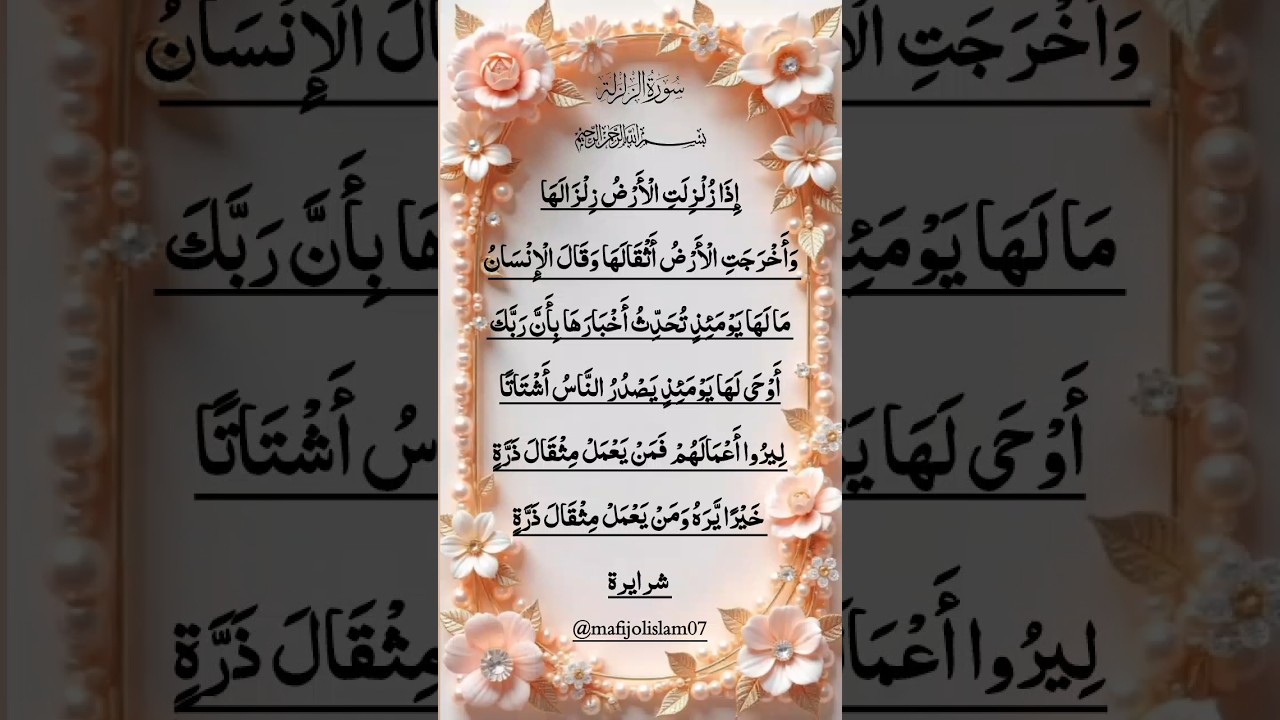 سُورَةُ الزَّلْزَلَة
بِسْمِ اللَّهِ الرَّحْمَٰنِ الرَّحِيمِ
إِذَا زُلْزِلَتِ الْأَرْضُ زِلْزَالَهَا
وَأَخْرَجَتِ الْأَرْضُ أَثْقَالَهَا وَقَالَ الْإِنْسَانُ
مَا لَهَا يَوْمَئِذٍ تُحَدِّثُ أَخْبَارَهَا بِأَنَّ رَبَّكَ
أَوْحَى لَهَا يَوْمَئِذٍ يَصْدُرُ النَّاسُ أَشْتَاتًا
لِيرُوا أَعْمَالَهُمْ فَمَنْ يَعْمَلْ مِثْقَالَ ذَرَّةٍ
خَيْرًا يَّرَهُ وَمَنْ يَعْمَلْ مِثْقَالَ ذَرَّةٍ
شرايرة
@mafijolislam07